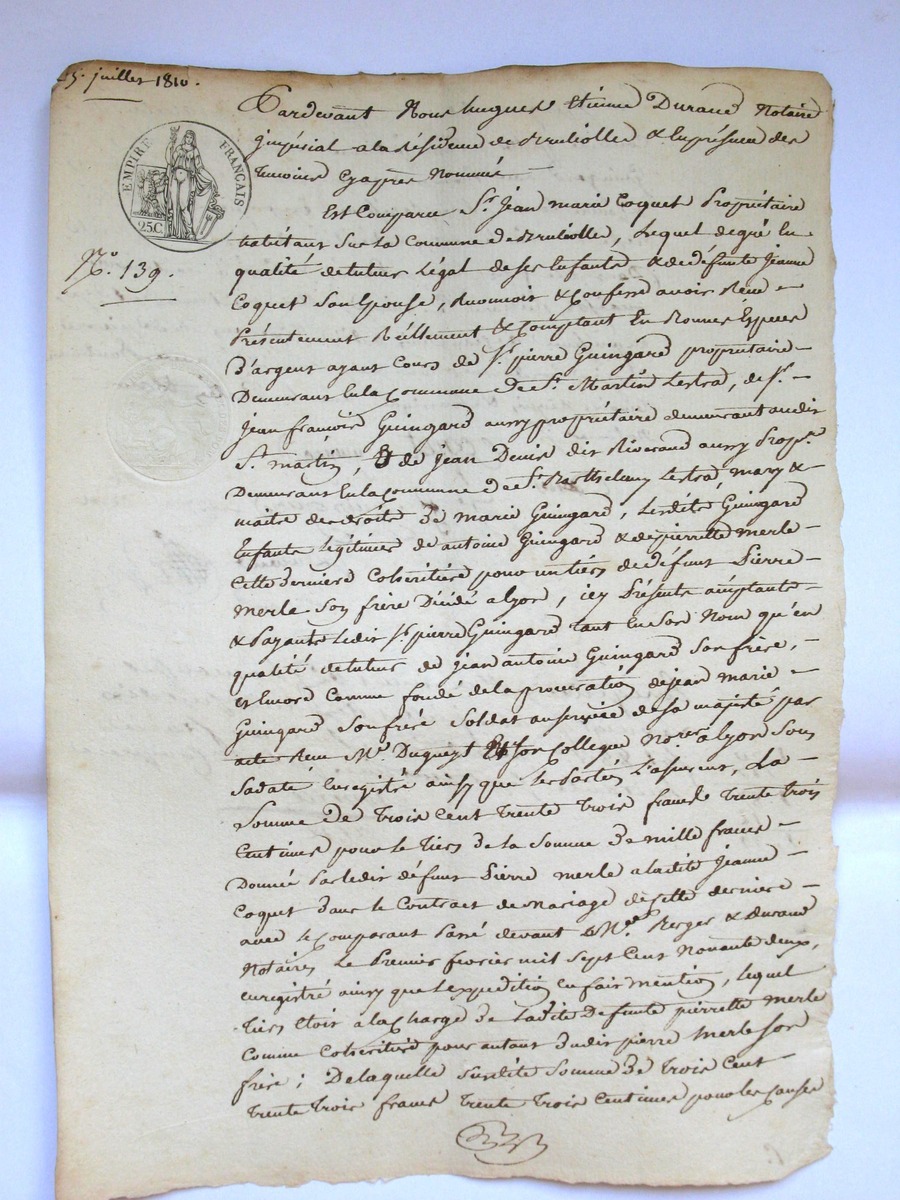 25. juillet 1810.
EMPIRE FRANÇAIS
25C
N.o 139.
Pardevant Nous hugues Etienne Durand Notaire
jmpérial a la Résidence de & En présence des
temoins Cyaprès Nommés
Est Comparu Sr. Jean marie Coquet Propriétaire
habitant Sur la Commune de , Lequel de gré En
qualité de tuteur Légal de ses Enfants & de défunte Jeanne
Coquet Son Epouse, Reconnoit & Confesse avoir Reçu
Présentement Réellement & Comptant En Bonnes Espèces
D'argent ayant Cours de Sr. pierre Guingard propriétaire
Demeurant En la Commune De St. Martin Lestra, de Sr.
Jean françois Guingard aussy propriétaire demeurant audit
St. martin, & de Jean Denis dit Riverand aussy Prop.re
Demeurant En la Commune de St. Barthelemy Lestra, mary &
maitre des droits de marie Guingard, Lesdits Guingard
Enfants Legitimes de antoine Guingard & de pierrette merle
Cette dernière Cohéritière pour un tiers de défunt Pierre
merle Son frère Décédé a lyon, icy Présents acceptants
& Payants Ledit Sr. pierre Guingard tant En Son Nom qu'en
qualité de tuteur de jean antoine Guingard Son frère,
et Encore Comme fondé de la procuration de jean marie
Guingard Son frère Soldat au service de Sa majesté par
acte Reçu Me. Dugueyt & Son Collegue No.res a lyon Sous
Sa date Enregistré ainsy que les Parties L'assurent, La
Somme de trois Cent trente trois francs trente trois
Centimes pour le tiers de la Somme de mille francs
Donnée Par ledit défunt Pierre merle a ladite Jeanne
Coquet dans le Contract de Mariage de Cette dernière
avec le Comparant Passé devant Me. Berger & durand
Notaires Le Premier fevrier mil Sept Cent Nonante deux,
enregistré ainsy que L'expédition En fait mention, lequel
tiers Etoit a la Charge de Ladite Defunte pierrette Merle
Comme Cohéritière pour autant dudit pierre Merle Son
frère; De laquelle Susdite Somme de trois Cent
trente trois francs trente trois Centimes pour les Causes